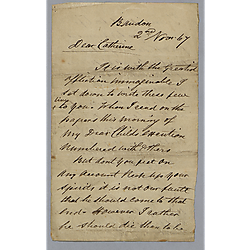 Bandon
2nd Nov. 67
Dear Catherine
It is with the Greatest
affliction immaginable I
sat down to write these few
lines
to you. When I read on the
papers this morning of
my Dear Child's Mention
numbered with others
But dont you put on
any account Keep up your
spirits it is not our fault
that he should come to that
end. However I rather
he should die than to be